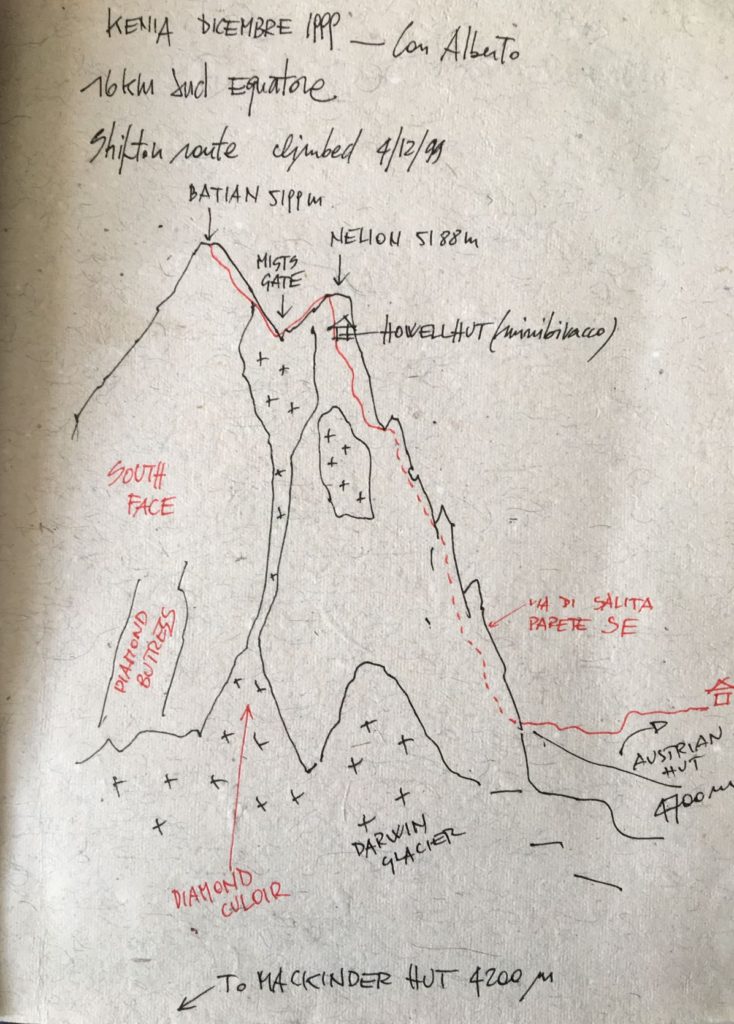 KENIA DICEMBRE 1999 — Con Alberto
16 km Sud EQUATORE
Shipton route climbed 4/12/99
BATIAN 5199 m
NELION 5188 m
MISTS
GATE
HOWELL HUT (minibivacco)
SOUTH
FACE
VIA DI SALITA
PARETE SE
DIAMOND
BUTRESS
AUSTRIAN
HUT
4700 m
DARWIN
GLACIER
DIAMOND
CULOIR
TO MACKINDER HUT 4200 m